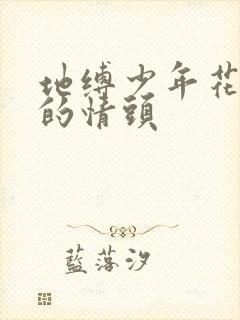 地缚少年花
的情頭
藍落汐